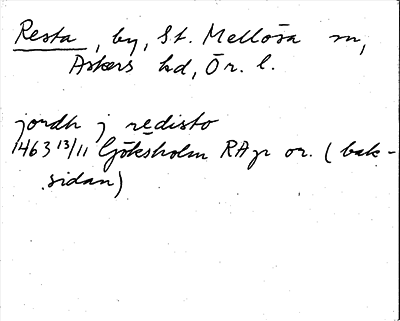 Resta, by, St. Mellösa sn,
Askers hd, Ör. l.
jordh j redisto
1463 13/11 Göksholm RAp or. (bak-
sidan)